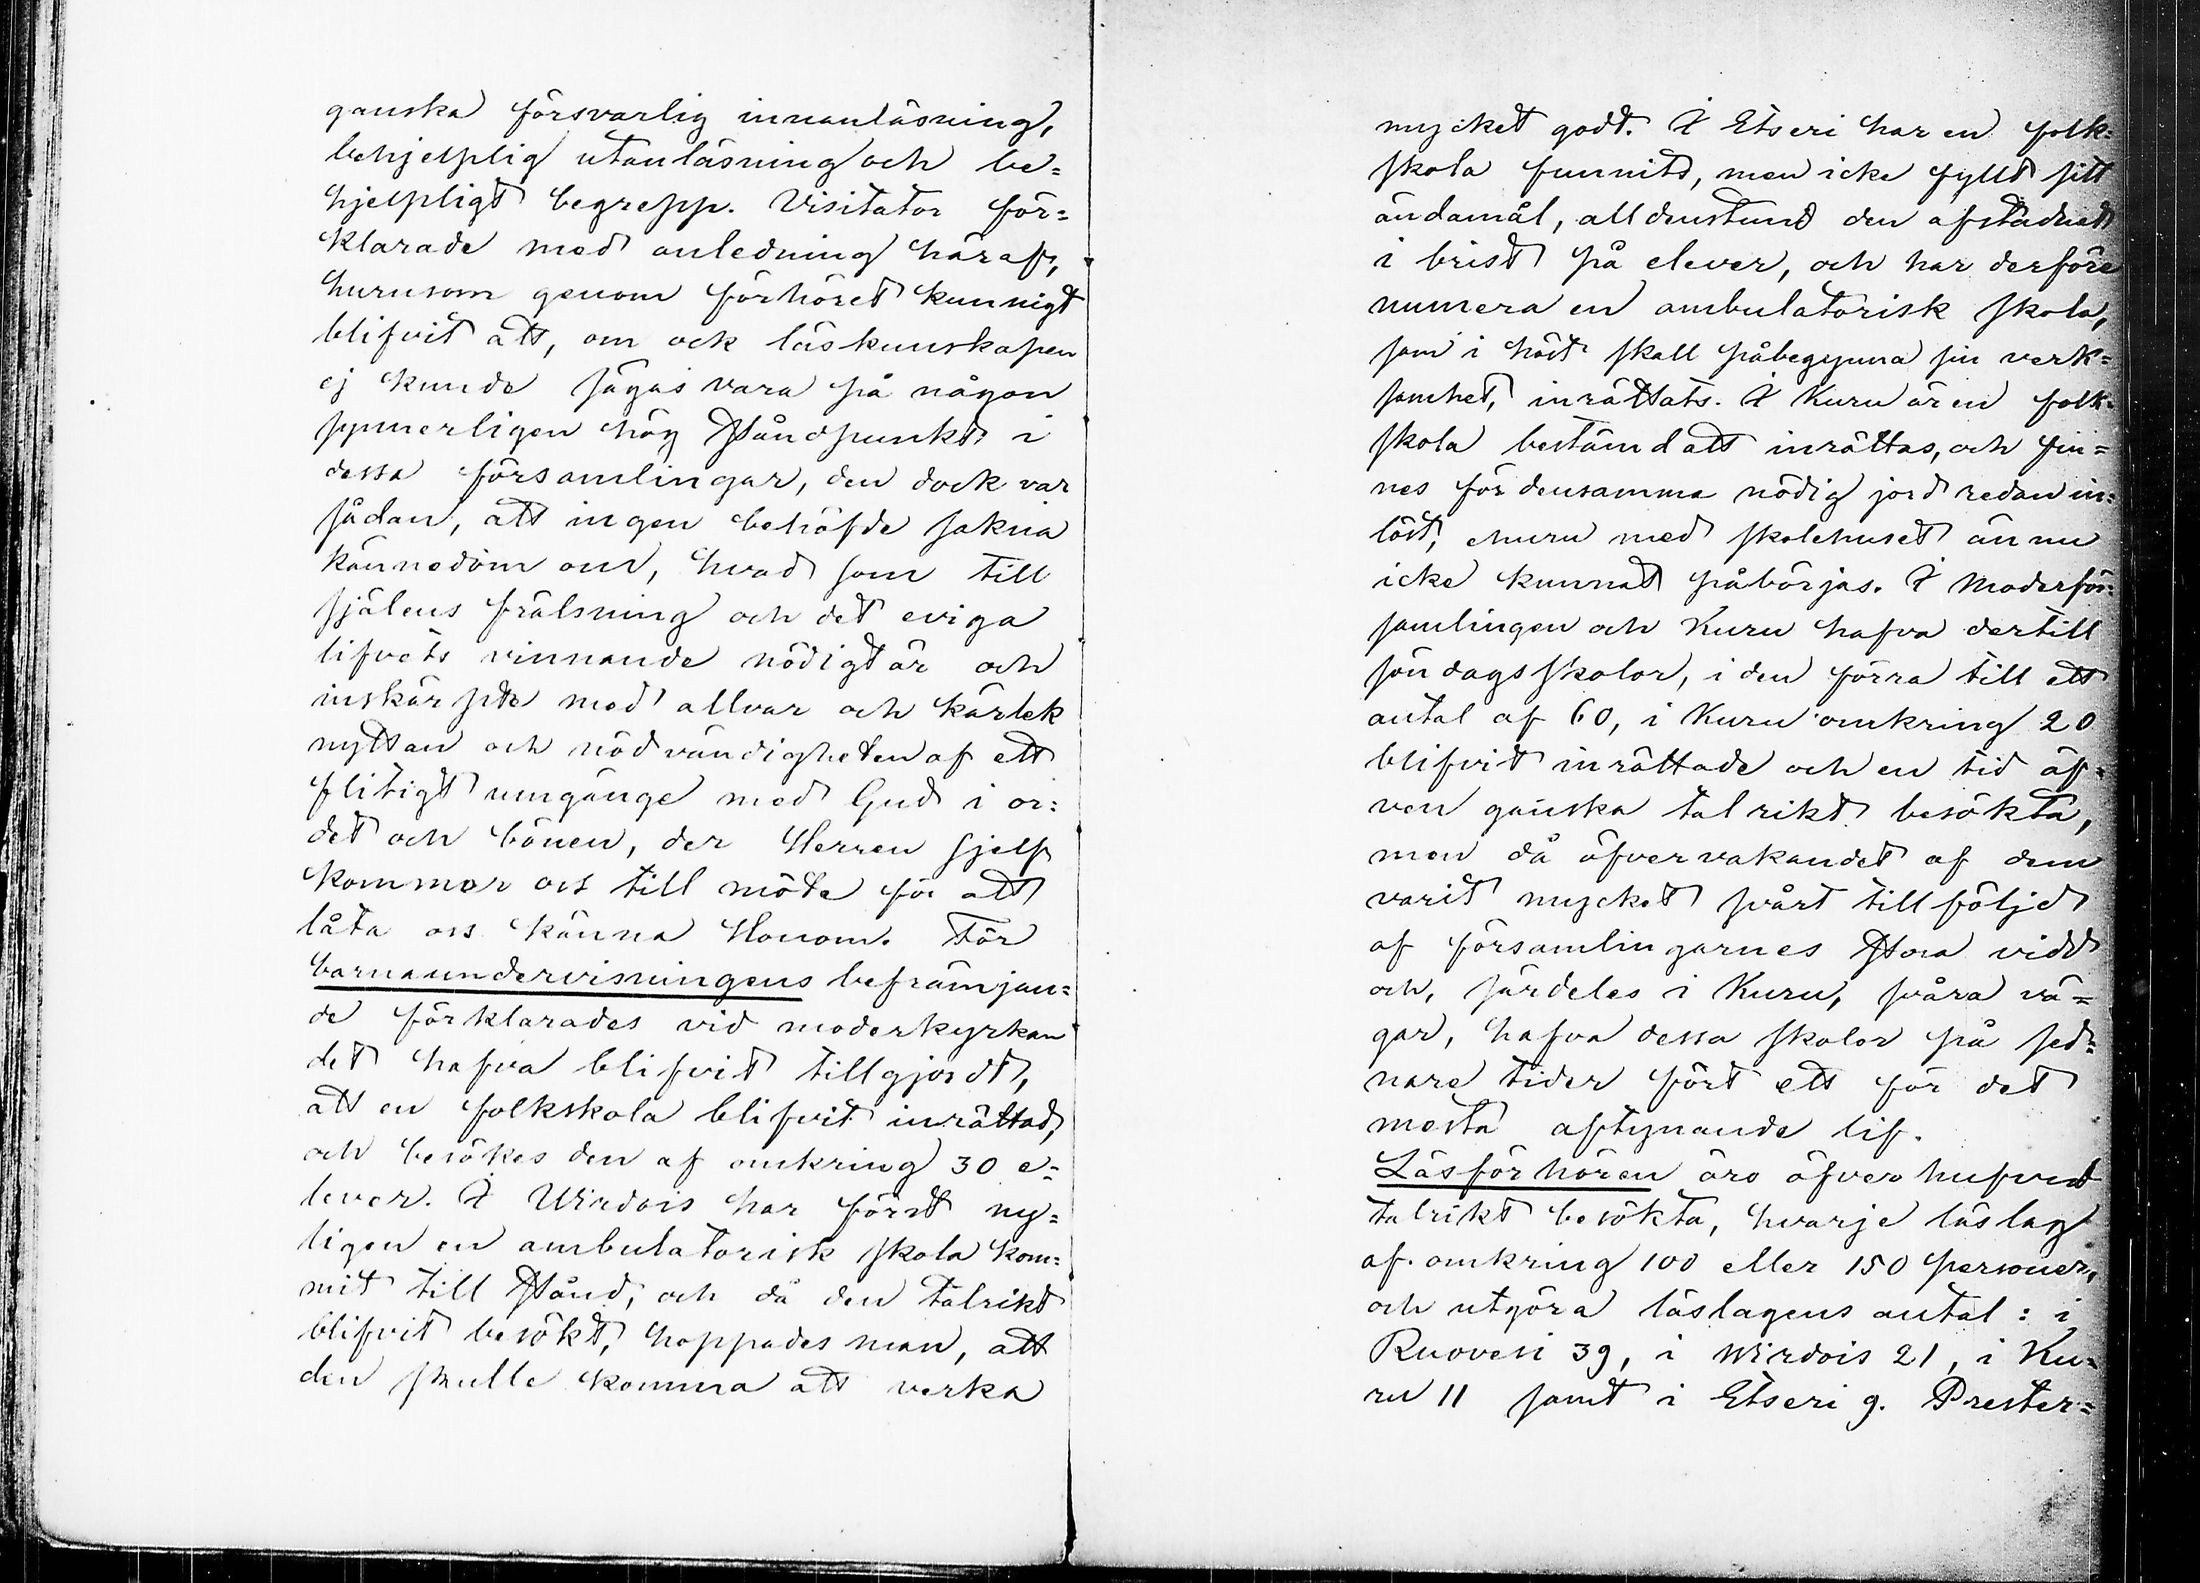 ganska försvarlig innanläsning,
behjelplig utanläsning och be=
hjelpligt begrepp. Visitator för=
klarade med anledning häraf,
hurusom genom förhöret kunnigt
blifvit att, om ock läskunskapen
ej kunde sägas vara på någon
synnerligen hög ståndpunkt i
dessa församlingar, den dock var
sådan, att ingen behöfde sakna
kännedom om, hvad som till
själens frälsning och det eviga
lifvets vinnande nödigt är och
inskärpte med allvar och kärlek
nyttan och nödvändigheten af ett
flitigt umgänge med Gud i or=
det och bönen, der Herren sjelf
kommer oss till möte för att
låta oss känna Honom. För
barnaundervisningens befrämjan=
de förklarades vid moderkyrkan
det hafva blifvit tillgjordt,
att en folkskola blifvit inrättad,
och besökes den af omkring 30 e=
lever. I Wirdois har först ny=
ligen en ambulatorisk skola kom=
mit till stånd, och då den talrikt
blifvit besökt, hoppades man, att
den skulle komma att verka
mycket godt. I Etseri har en folk=
skola funnits, men icke fyllt sitt
ändamål, alldenstund den afstadnat
i brist på elever, och har derföre
numera en ambulatorisk skola,
som i höst skall påbegynna sin verk=
samhet, inrättats. I Kuru är en folk=
skola bestämd att inrättas, och fin=
nes för densamma nödig jord redan in=
löst, ehuru med skolehuset ännu
icke kunnat påbörjas. I Moderför=
samlingen och Kuru hafva dertill
söndagsskolor, i den förra till ett
antal af 60, i Kuru omkring 20
blifvit inrättade och en tid äf=
ven ganska talrikt besökta,
men då öfvervakandet af dem
varit mycket svårt till följd
af församlingarnes stora vidd
och, särdeles i Kuru, svåra vä=
gar, hafva dessa skolor på sed=
nare tider fört ett för det
mesta aftynande lif.
Läsförhören äro öfverhufvud
talrikt besökta, hvarje läslag
af omkring 100 eller 150 personer,
och utgöra läslagens antal: i
Ruovesi 39, i Wirdois 21, i Ku=
ru 11 samt i Etseri 9. Prester=